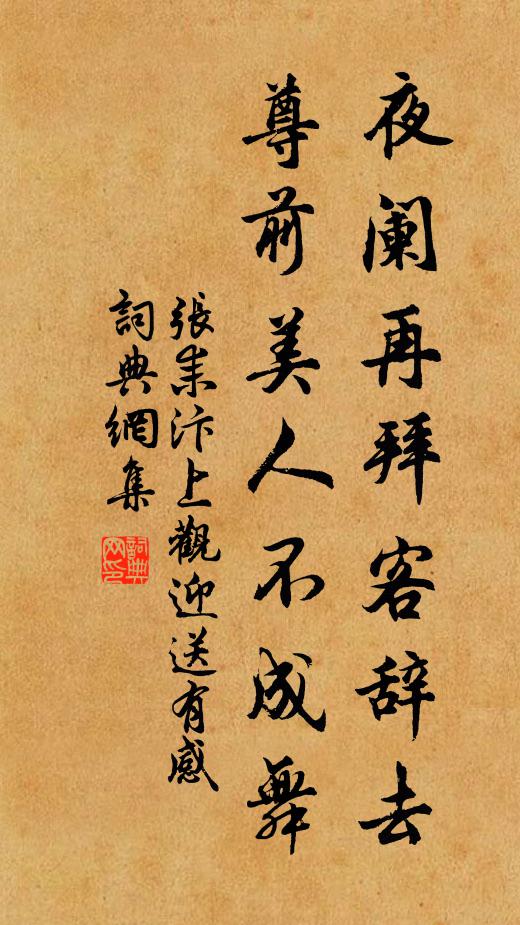 夜阑再拜客辞去
尊前美人不成舞
張耒汴上觀迎送有感
詞典網集
詞典
网印